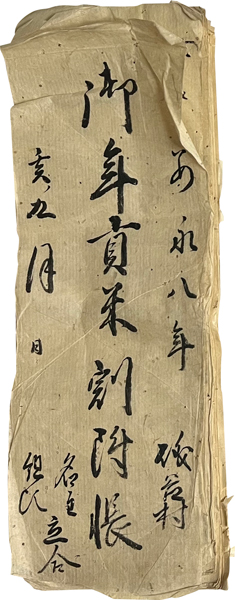 安永八年
御年貢米割附帳
亥九月日
名主
組頭
立合